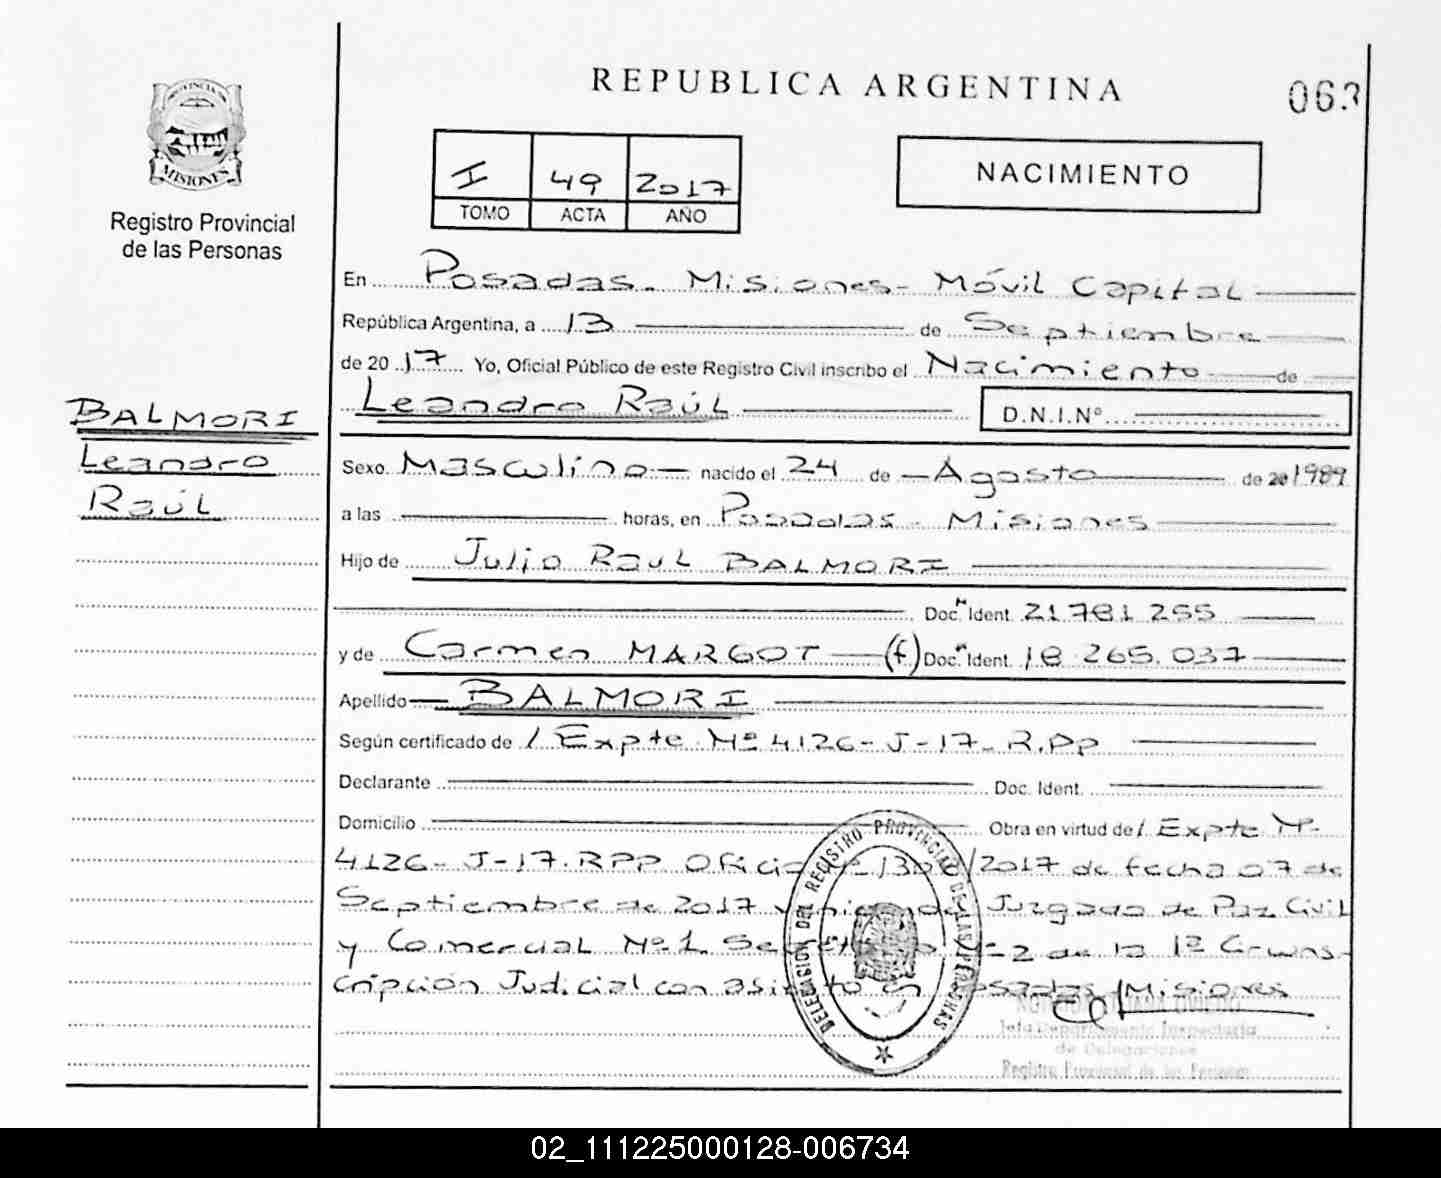 REPUBLICA ARGENTINA
063
PROVINCIA DE
MISIONES
Registro Provincial
de las Personas
I 49 2017
TOMO ACTA AÑO
NACIMIENTO
En Posadas. Misiones- Móvil Capital
República Argentina, a 13 de Septiembre
de 2017 Yo, Oficial Público de este Registro Civil inscribo el Nacimiento de
Leandro Raúl D.N.I.Nº
BALMORI
Leandro
Raúl
Sexo Masculino nacido el 24 de Agosto de 20 1989
a las horas, en Posadas - Misiones
Hijo de Julio Raul BALMORI
Doc. Ident. 21.781.255
y de Carmen MARGOT (f) Doc. Ident. 18.265.037
Apellido BALMORI
Según certificado de / Expte Nº 4126-J-17-R.Pp
Declarante Doc. Ident.
Domicilio Obra en virtud de / Expte Nº
4126-J-17.RPP Oficio /2017 de fecha 07 de
Septiembre de 2017 Juzgado de Paz Civil
y Comercial Nº1 2 de la 1ª Circuns-
cripción Judicial con asiento en Posadas / Misiones
DELEGACION DEL REGISTRO PROVINCIAL DE LAS PERSONAS
Jefa Departamento Inspectoria
de Delegaciones
Registro Provincial de las Personas
02_111225000128-006734